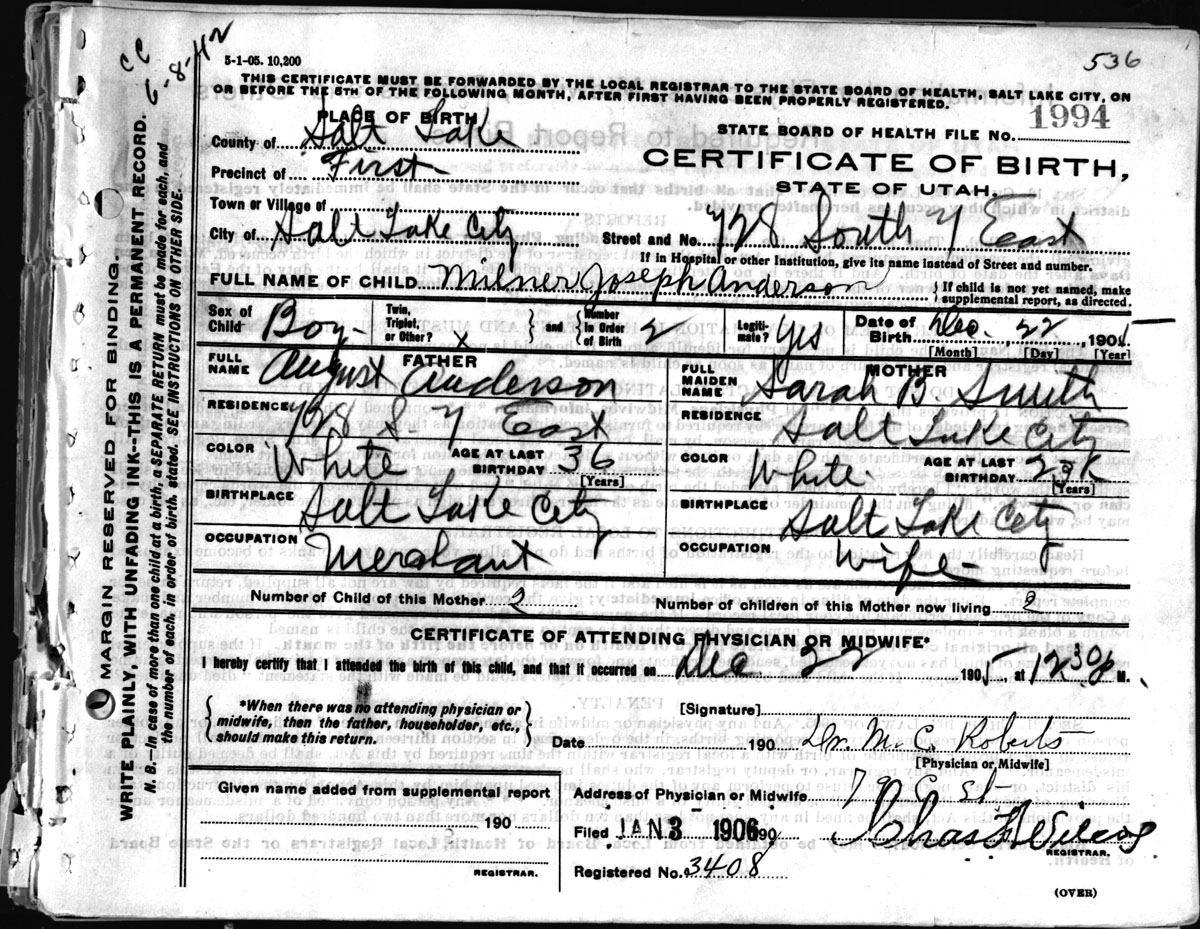 5-1-05. 10,200
536
CC
6-8-42
THIS CERTIFICATE MUST BE FORWARDED BY THE LOCAL REGISTRAR TO THE STATE BOARD OF HEALTH, SALT LAKE CITY, ON
OR BEFORE THE 5TH OF THE FOLLOWING MONTH, AFTER FIRST HAVING BEEN PROPERLY REGISTERED.
PLACE OF BIRTH
STATE BOARD OF HEALTH FILE No. 1994
County of Salt Lake
CERTIFICATE OF BIRTH,
Precinct of First
STATE OF UTAH.
Town or Village of
City of Salt Lake City Street and No. 728 South 7 East
If in Hospital or other Institution, give its name instead of Street and number.
FULL NAME OF CHILD Milner Joseph Anderson } If child is not yet named, make supplemental report, as directed.
Sex of Child Boy Twin, Triplet, or Other? x } and { Number in Order of Birth 2 Legitimate? Yes Date of Birth Dec. 22 1905
[Month] [Day] [Year]
FATHER
MOTHER
FULL NAME August Anderson
FULL MAIDEN NAME Sarah B Smith
RESIDENCE 728 S 7 East
RESIDENCE Salt Lake City
COLOR White AGE AT LAST BIRTHDAY 36 [Years]
COLOR White AGE AT LAST BIRTHDAY [Years]
BIRTHPLACE Salt Lake City
BIRTHPLACE Salt Lake City
OCCUPATION Merchant
OCCUPATION Wife
Number of Child of this Mother 2 Number of children of this Mother now living 2
CERTIFICATE OF ATTENDING PHYSICIAN OR MIDWIFE*
I hereby certify that I attended the birth of this child, and that it occurred on Dec 22 1905, at 12 30 p M.
{ *When there was no attending physician or
midwife, then the father, householder, etc.,
should make this return. }
[Signature]
Date 190 Dr. M. C. Roberts
[Physician or Midwife]
Given name added from supplemental report
190
REGISTRAR.
Address of Physician or Midwife 79 E St
Filed JAN 3 1906 190 Chas F Wilcox
REGISTRAR.
Registered No. 3408
(OVER)
MARGIN RESERVED FOR BINDING.
WRITE PLAINLY, WITH UNFADING INK--THIS IS A PERMANENT RECORD.
N. B.—In case of more than one child at a birth, a SEPARATE RETURN must be made for each, and
the number of each, in order of birth, stated. SEE INSTRUCTIONS ON OTHER SIDE.